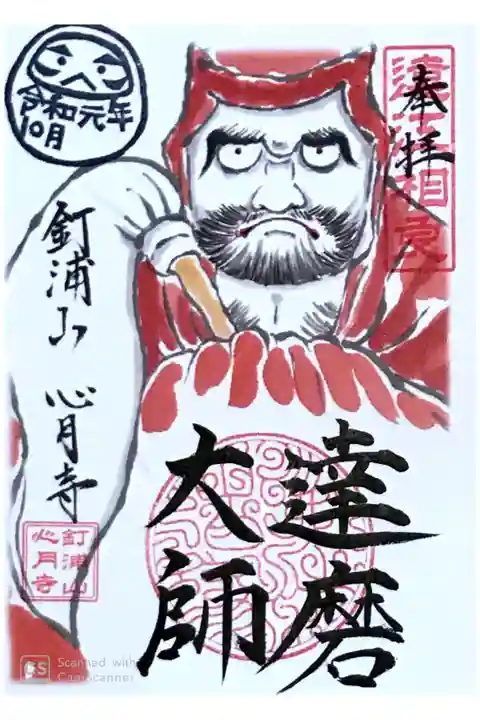 奉拝
達磨
大師
令和元年
10月
釘浦山 心月寺
釘浦山
心月寺
Scanned with
CamScanner